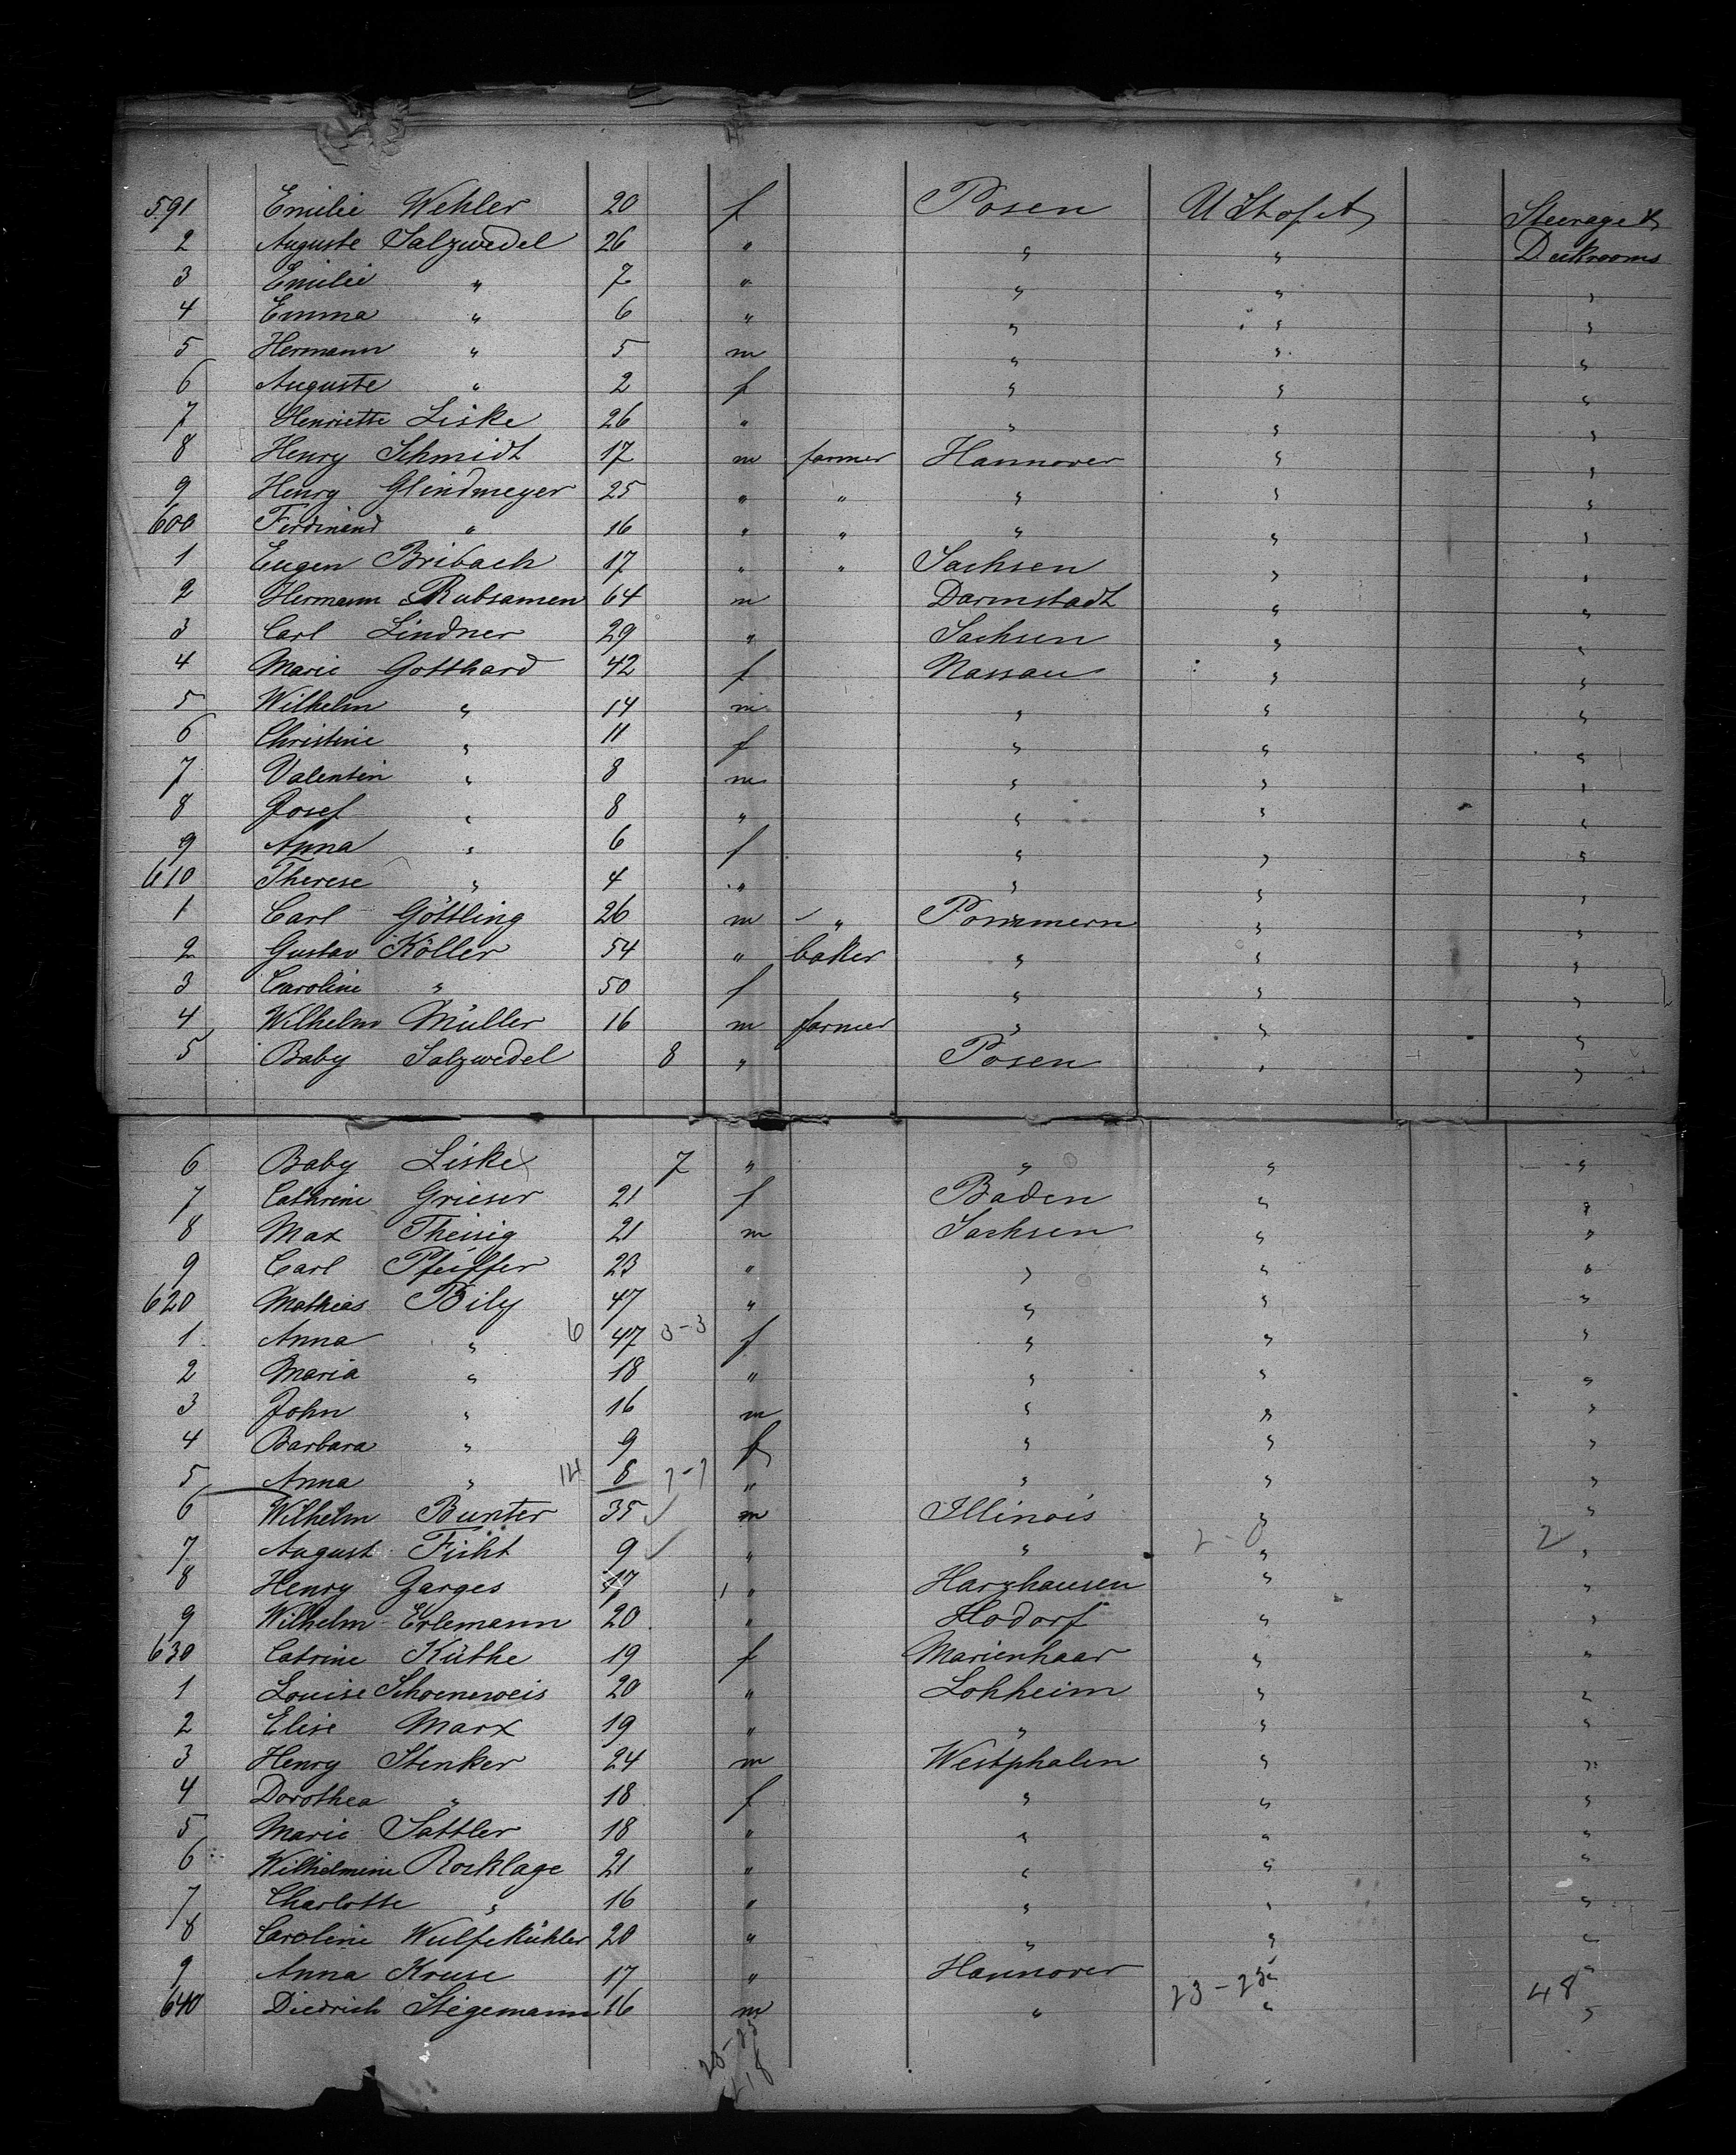 591 Emilie Wehler 20 f Posen U St of A Steerage &
2 Auguste Salzwedel 26 " " " Deckrooms
3 Emilie " 7 " " " "
4 Emma " 6 " " " "
5 Hermann " 5 m " " "
6 Auguste " 2 f " " "
7 Henriette Liske 26 " " " "
8 Henry Schmidt 17 m farmer Hannover " "
9 Henry Glindmeyer 25 " " " " "
600 Ferdinand " 16 " " " " "
1 Eugen Bribach 17 " " Sachsen " "
2 Hermann Rubsamen 64 m Darmstadt " "
3 Carl Lindner 29 " Sachsen " "
4 Marie Gotthard 42 f Nassau " "
5 Wilhelm " 14 m " " "
6 Christine " 11 f " " "
7 Valentin " 8 m " " "
8 Josef " 8 " " " "
9 Anna " 6 f " " "
610 Therese " 4 " " " "
1 Carl Göttling 26 m " Pommern " "
2 Gustav Köller 54 " baker " " "
3 Caroline " 50 f " " "
4 Wilhelm Müller 16 m farmer " " "
5 Baby Salzwedel 8 " Posen " "
6 Baby Liske 7 " " " "
7 Cathrine Grieser 21 f Baden " "
8 Max Theisig 21 m Sachsen " "
9 Carl Pfeiffer 23 " " " "
620 Mathias Bily 47 " " " "
1 Anna " 6 47 3-3 f " " "
2 Maria " 18 " " " "
3 John " 16 m " " "
4 Barbara " 9 f " " "
5 Anna " 14 8 7-7 " " " "
6 Wilhelm Bunter 35 m Illinois " "
7 August Ficht 9 " " 2-0 " 2 "
8 Henry Garges 17 " Harzhausen " "
9 Wilhelm Erlemann 20 " Hodorf " "
630 Catrine Küthe 19 f Marienhaar " "
1 Louise Schoeneweis 20 " Lohheim " "
2 Elise Marx 19 " " " "
3 Henry Stenker 24 m Westphalen " "
4 Dorothea " 18 f " " "
5 Marie Sattler 18 " " " "
6 Wilhelmine Rocklage 21 " " " "
7 Charlotte " 16 " " " "
8 Caroline Wulfekühler 20 " " " "
9 Anna Kruse 17 " Hannover " "
640 Diedrich Stegemann 16 m " 23-23 " 48 "